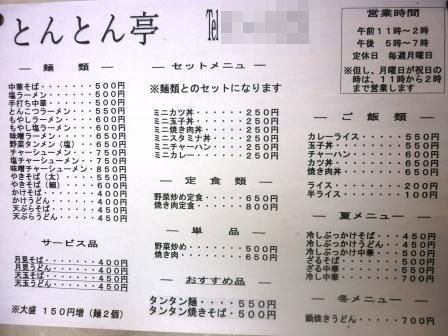 とんとん亭
Tel
営業時間
午前11時~2時
午後 5時~7時
定休日 毎週月曜日
※但し、月曜日が祝日の
時は、11時から2時
まで営業します
― 麺類 ―
中華そば 500円
塩ラーメン 500円
手打ち中華 500円
とんこつラーメン 550円
もやしラーメン 600円
もやし塩ラーメン 600円
味噌ラーメン 600円
野菜タンメン(塩) 650円
チャーシューメン 750円
塩チャーシューメン 750円
味噌チャーシューメン 850円
やきそば(太) 550円
やきそば(細) 600円
かけそば 400円
かけうどん 400円
天ぷらそば 450円
天ぷらうどん 450円
サービス品
月見そば 400円
月見うどん 400円
天玉そば 400円
天玉うどん 400円
※大盛 150円増(麺2個)
― セットメニュー ―
※麺類とのセットになります
ミニカツ丼 250円
ミニ玉子丼 250円
ミニ焼き肉丼 250円
ミニスタミナ丼 250円
ミニチャーハン 250円
ミニカレー 250円
― 定食類 ―
野菜炒め定食 650円
焼き肉定食 800円
― 単品 ―
野菜炒め 500円
焼き肉 650円
― おすすめ品 ―
タンタン麺 550円
タンタン焼きそば 500円
― ご飯類 ―
カレーライス 550円
玉子丼 550円
チャーハン 600円
カツ丼 650円
焼き肉丼 650円
ライス 200円
半ライス 100円
― 夏メニュー ―
冷しぶっかけそば 450円
冷しぶっかけうどん 450円
冷しぶっかけ中華 500円
ざるそば 500円
ざる中華 550円
冷し中華 700円
― 冬メニュー ―
鍋焼きうどん 700円